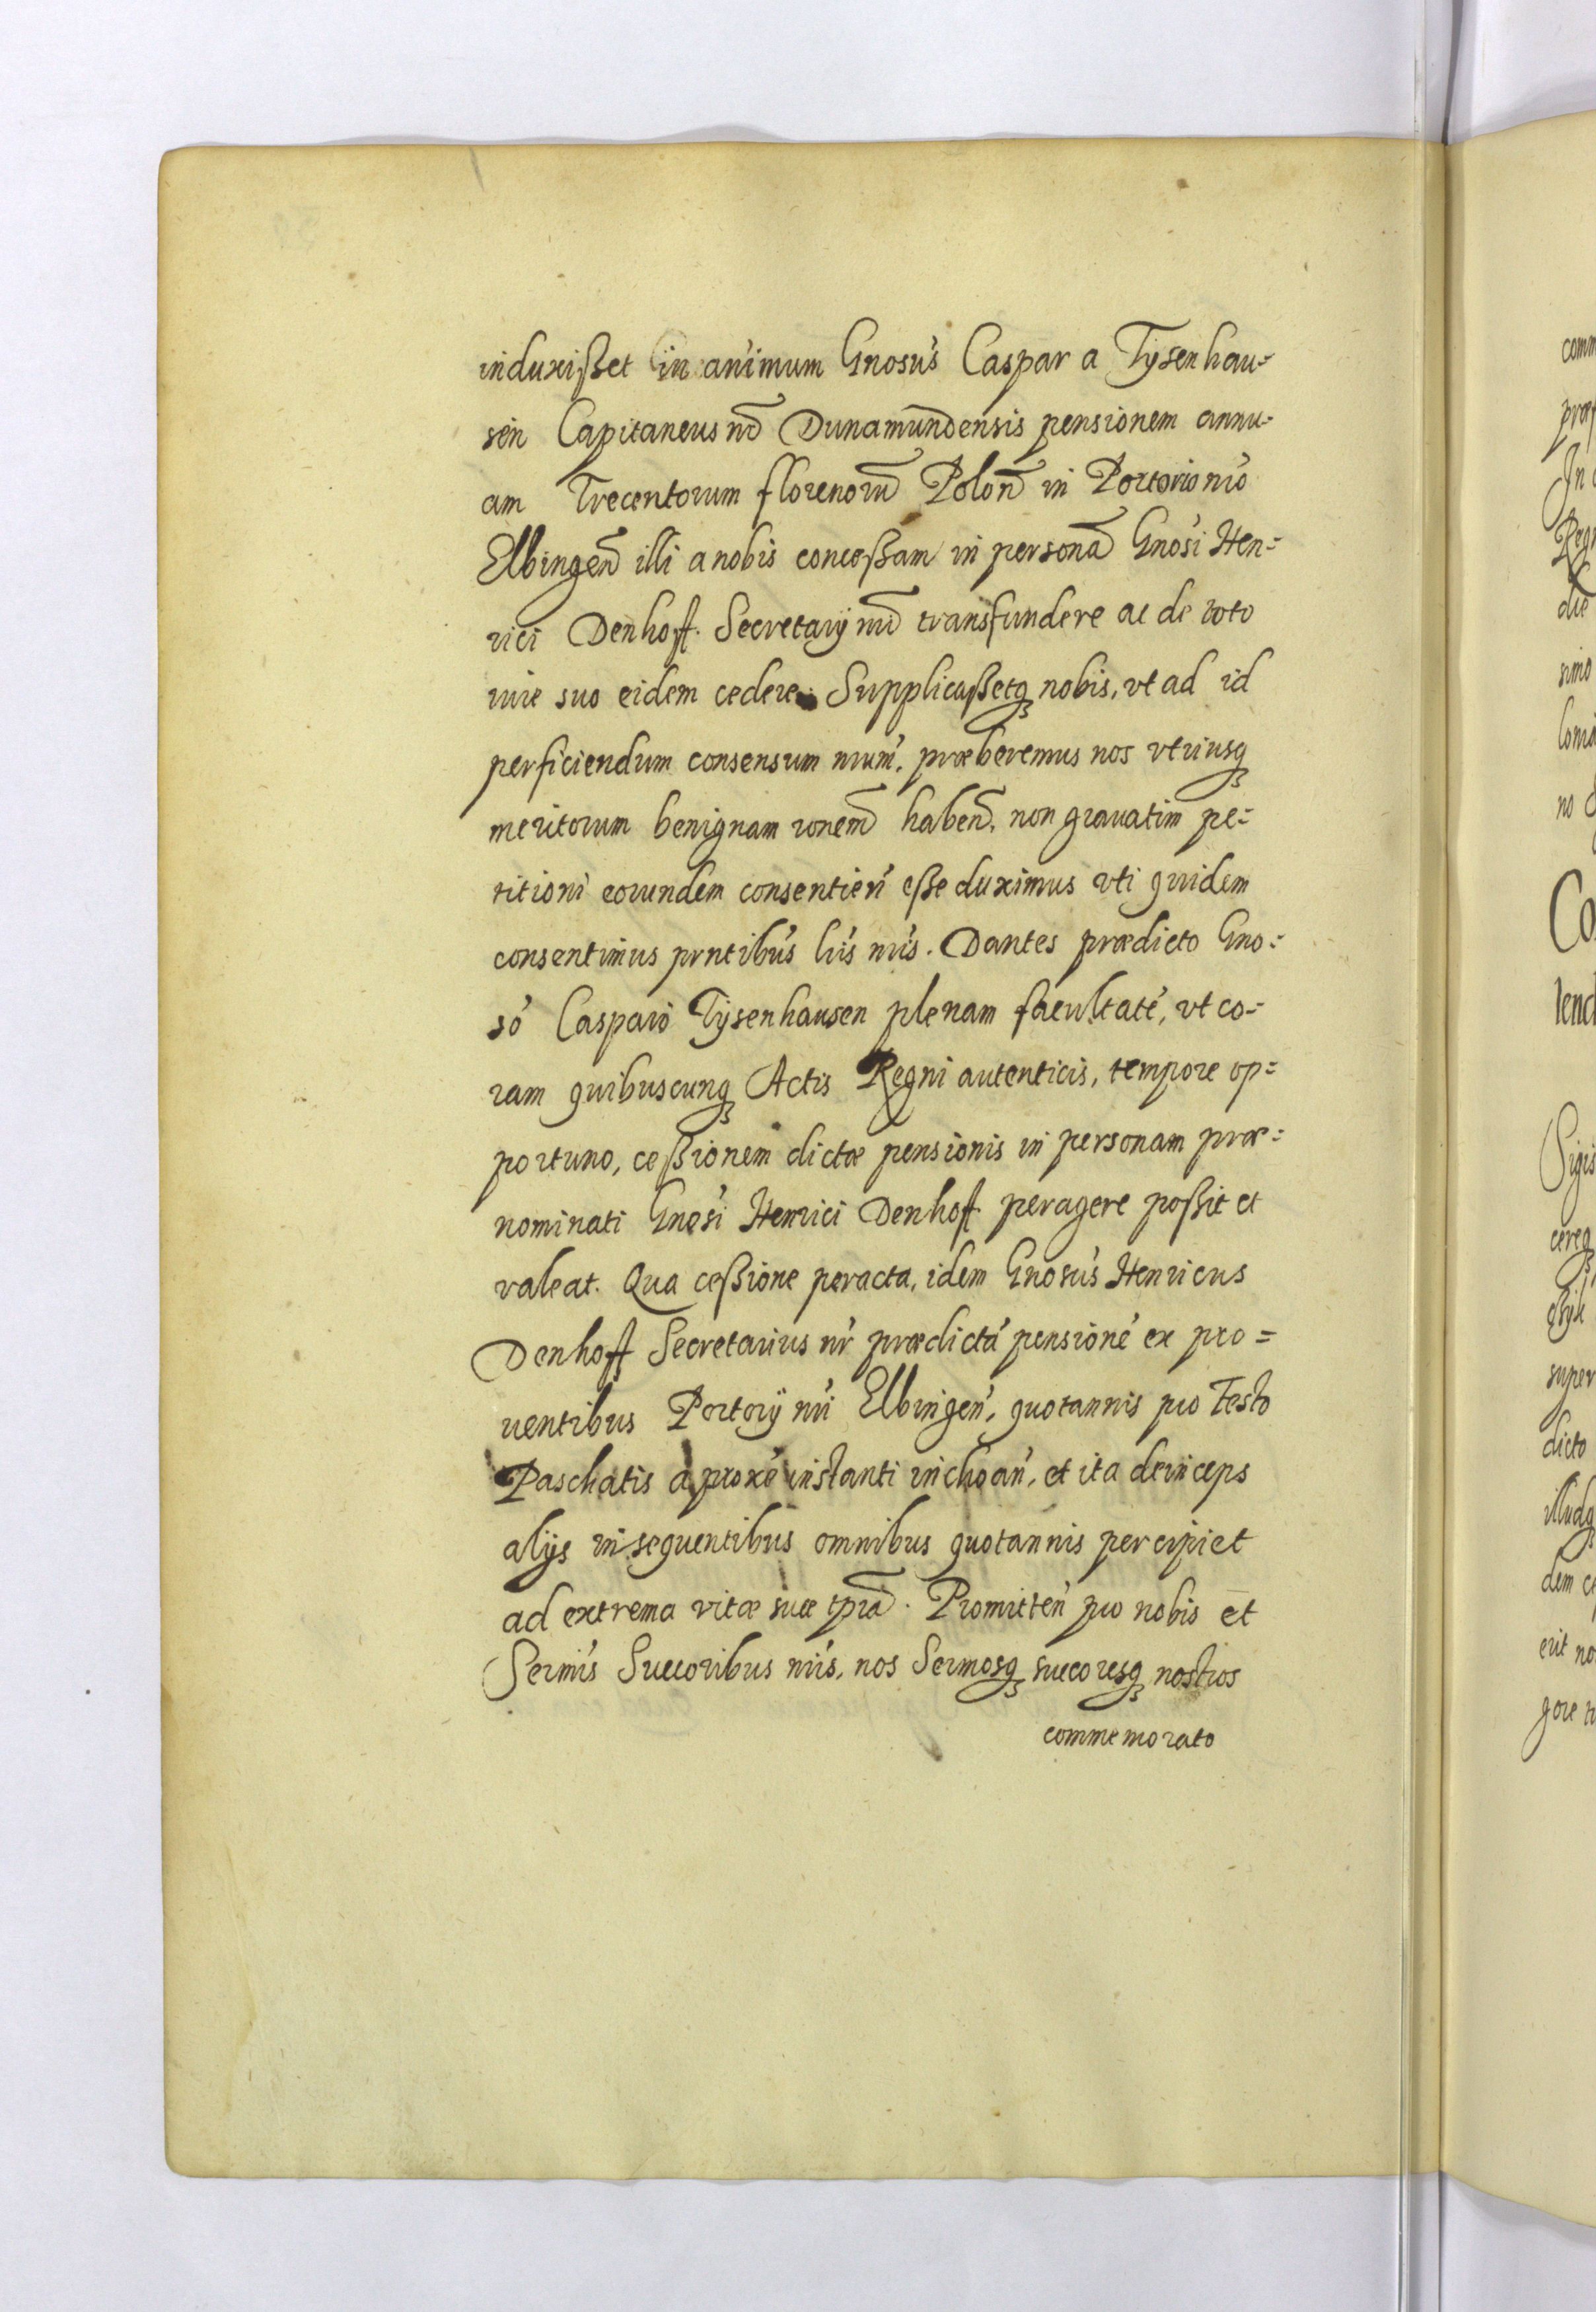 induxißet in animum Gnosus Caspar a Tysenhau-
sen Capitaneus nr Dunamundensis pensionem annu-
am Trecentorum florenorū Polon in Portorio nro
Elbingen illi a nobis conceßam in personā Gnosi Hen-
rici Denhoff. Secretarij nri transfundere ac de toto
iure suo eidem cedere. Supplicaßetq nobis, vt ad id
perficiendum consensum nrum. præberemus nos vtriusq
meritorum benignam ronem haben. non grauatim pe-
titioni eorundem consentien eße duximus vti quidem
consentimus pntibus lris nris. Dantes prædicto Gno-
so Casparo Tysenhausen plenam facultatē, vt co-
ram quibuscunq Actis Regni autenticis, tempore op-
portuno, ceßionem dictæ pensionis in personam præ-
nominati Gnosi Henrici Denhoff. peragere poßit et
valeat. Qua ceßione peracta, idem Gnosus Henricus
Denhoff Secretarius nr prædictā pensionē ex pro-
uentibus Portorij nri Elbingen, quotannis pro festo
Paschatis a proxe instanti inchoan, et ita deinceps
alijs insequentibus omnibus quotannis percipiet
ad extrema vitæ suæ tpra. Promitten pro nobis et
Sermis Succoribus nris, nos Sermosq succoresq nostros
commemorato